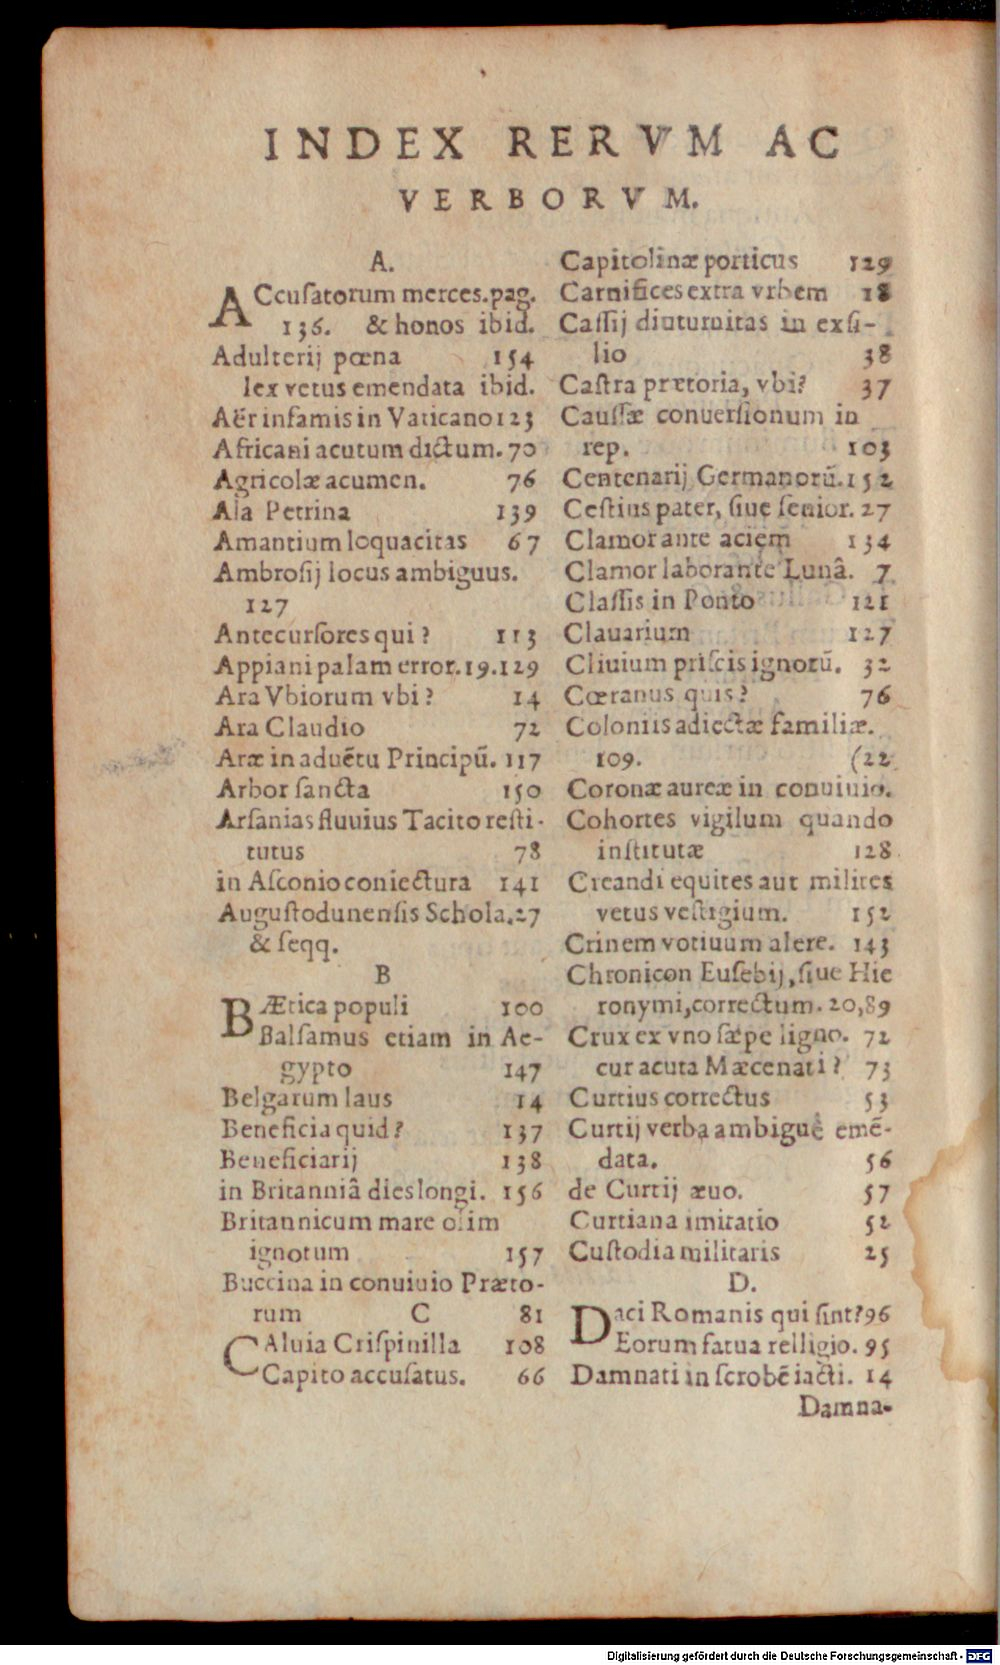 INDEX RERVM AC
VERBORVM.
A.
ACcuſatorum merces.pag.
136. & honos ibid.
Adulterij pœna 154
lex vetus emendata ibid.
Aër infamis in Vaticano 123
Africani acutum dictum. 70
Agricolæ acumen. 76
Ala Petrina 139
Amantium loquacitas 67
Ambroſij locus ambiguus.
127
Antecurſores qui? 113
Appiani palam error. 19.129
Ara Vbiorum vbi? 14
Ara Claudio 72
Aræ in aduētu Principū. 117
Arbor ſancta 150
Arſanias fluuius Tacito reſti-
tutus 78
in Aſconio coniectura 141
Auguſtodunenſis Schola. 27
& ſeqq.
B
BÆtica populi 100
Balſamus etiam in Ae-
gypto 147
Belgarum laus 14
Beneficia quid? 137
Beneficiarij 138
in Britanniâ dies longi. 156
Britannicum mare olim
ignotum 157
Buccina in conuiuio Præto-
rum 81
C
CAluia Criſpinilla 108
Capito accuſatus. 66
Capitolinæ porticus 129
Carnifices extra vrbem 18
Caſſij diuturnitas in exſi-
lio 38
Caſtra prætoria, vbi? 37
Cauſſæ conuerſionum in
rep. 103
Centenarij Germanorū. 152
Ceſtius pater, ſiue ſenior. 27
Clamor ante aciem 134
Clamor laborante Lunâ. 7
Claſſis in Ponto 121
Clauarium 127
Cliuium priſcis ignotū. 32
Cœranus quis? 76
Coloniis adiectæ familiæ.
109. (22
Coronæ aureæ in conuiuio.
Cohortes vigilum quando
inſtitutæ 128
Creandi equites aut milites
vetus veſtigium. 152
Crinem votiuum alere. 143
Chronicon Euſebij, ſiue Hie
ronymi, correctum. 20,89
Crux ex vno ſæpe ligno. 72
cur acuta Mæcenati? 73
Curtius correctus 53
Curtij verba ambiguè emē-
data. 56
de Curtij æuo. 57
Curtiana imitatio 52
Cuſtodia militaris 25
D.
Daci Romanis qui ſint? 96
Eorum fatua relligio. 95
Damnati in ſcrobē iacti. 14
Damna-
Digitalisierung gefördert durch die Deutsche Forschungsgemeinschaft - DFG